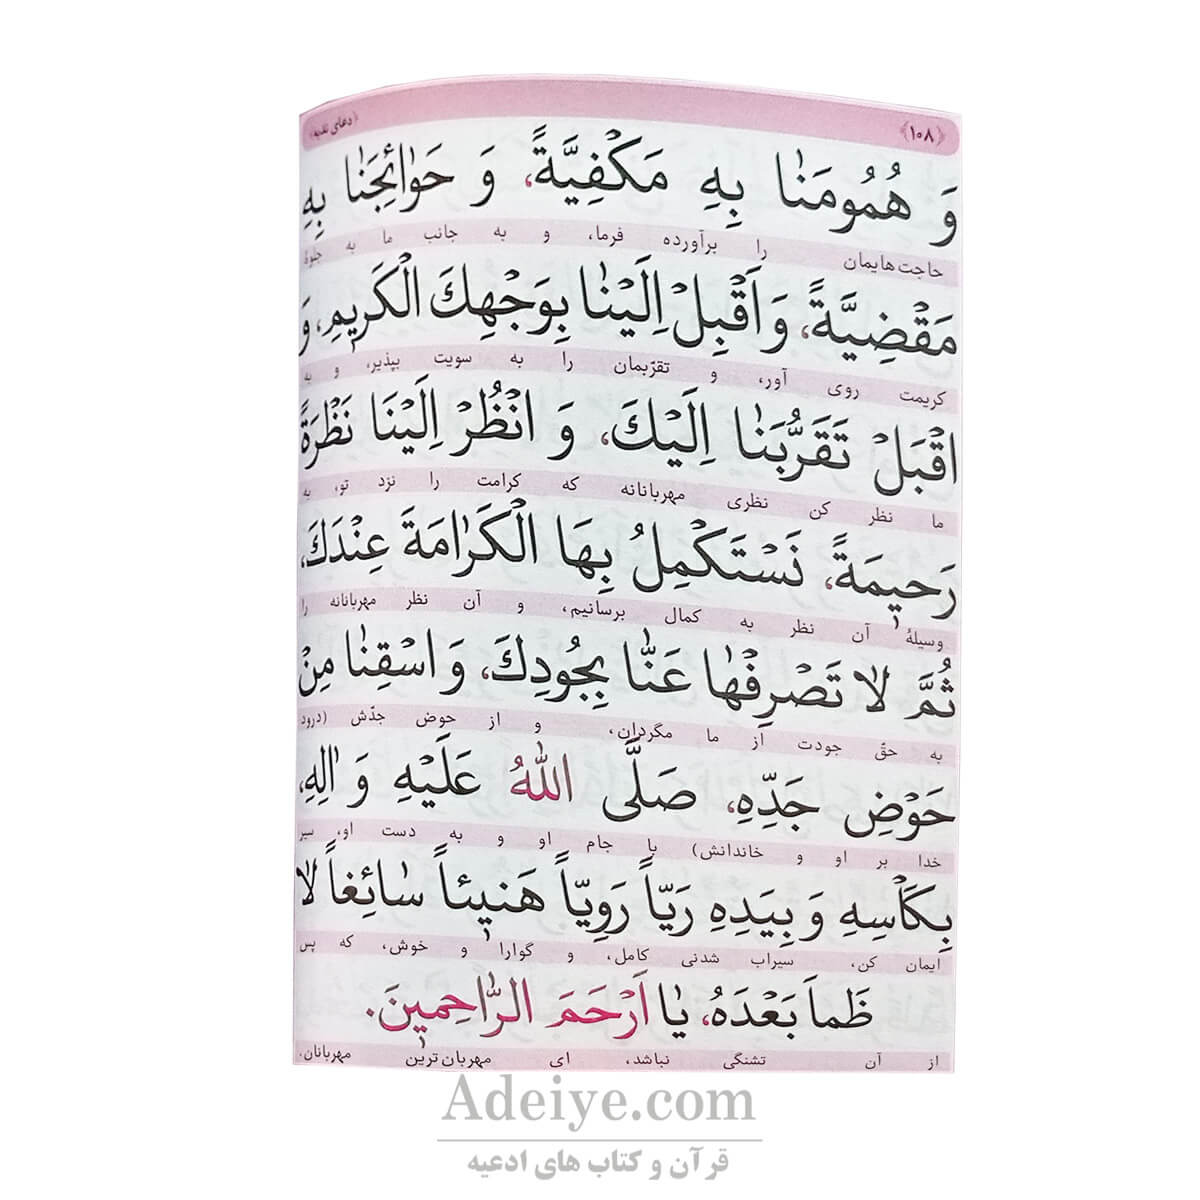 ﴿۱۰۸﴾ ﴿دعای ندبه﴾
وَ هُمُومَنٰا بِهِ مَكْفِيَّةً، وَ حَوٰائِجَنٰا بِهِ
حاجت‌هایمان را برآورده فرما، و به جانب ما به جلوهٔ
مَقْضِيَّةً، وَ اَقْبِلْ اِلَيْنٰا بِوَجْهِكَ الْكَرِيمِ، وَ
کریمت روی آور، و تقرّبمان را به سویت بپذیر، و به
اقْبَلْ تَقَرُّبَنٰا اِلَيْكَ، وَ انْظُرْ اِلَيْنَا نَظْرَةً
ما نظر کن نظری مهربانانه که کرامت را نزد تو، به
رَحيِمَةً، نَسْتَكْمِلُ بِهَا الْكَرٰامَةَ عِنْدَكَ،
وسیلهٔ آن نظر به کمال برسانیم، و آن نظر مهربانانه را
ثُمَّ لاٰ تَصْرِفْهٰا عَنّٰا بِجُودِكَ، وَ اسْقِنٰا مِنْ
به حقّ جودت از ما مگردان، و از حوض جدّش (درود
حَوْضِ جَدِّهِ، صَلَّى اللّٰهُ عَلَيْهِ وَ اٰلِهِ،
خدا بر او و خاندانش) با جام او و به دست او، سیر
بِكَأْسِهِ وَ بِيَدِهِ رَيّاً رَوِيّاً هَنيٖئاً سٰائِغاً لاٰ
ایمان کن، سیراب شدنی کامل، و گوارا و خوش، که پس
ظَمَاَ بَعْدَهُ، يٰا اَرْحَمَ الرّٰاحِميٖنَ.
از آن تشنگی نباشد، ای مهربان‌ترین مهربانان.
Adeiye.com
قرآن و کتاب های ادعیه